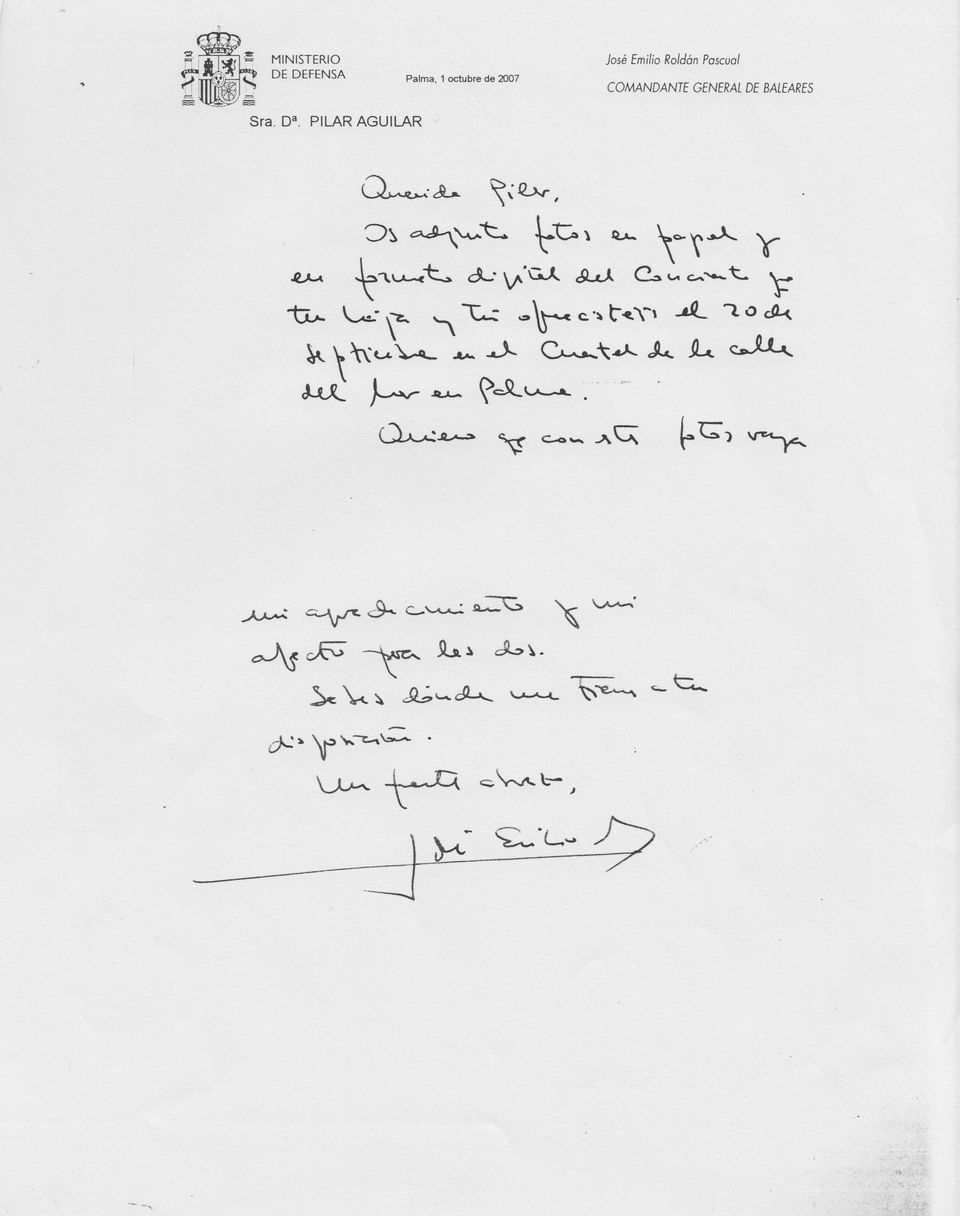 MINISTERIO
DE DEFENSA
Palma, 1 octubre de 2007
José Emilio Roldán Pascual
COMANDANTE GENERAL DE BALEARES
Sra. Dª. PILAR AGUILAR
Querida Pilar,
Os adjunto fotos en papel y
en formato digital del Concierto que
tu hija y tú ofrecisteis el 20 de
septiembre en el Cuartel de la calle
del Mar en Palma.
Quiero que con estas fotos vaya
mi agradecimiento y mi
afecto para las dos.
Sabes dónde me tienes a tu
disposición.
Un fuerte abrazo,
José Emilio